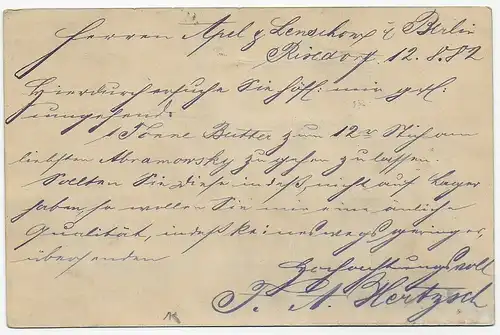 Herren Apel & Lenschow i/ Berlin
Rixdorf, 12.8.82
Hierdurch ersuche Sie höfl: mir gefl:
umgehend
1 Tonne Butter zum 12r Stich am
liebsten Abramowsky zugehen zu lassen.
Sollten Sie diese indeß nicht auf Lager
haben, so wollen Sie mir eine änliche
Qualität, indeß keineswegs geringer,
übersenden
Hochachtungsvoll
A. Hertzsch